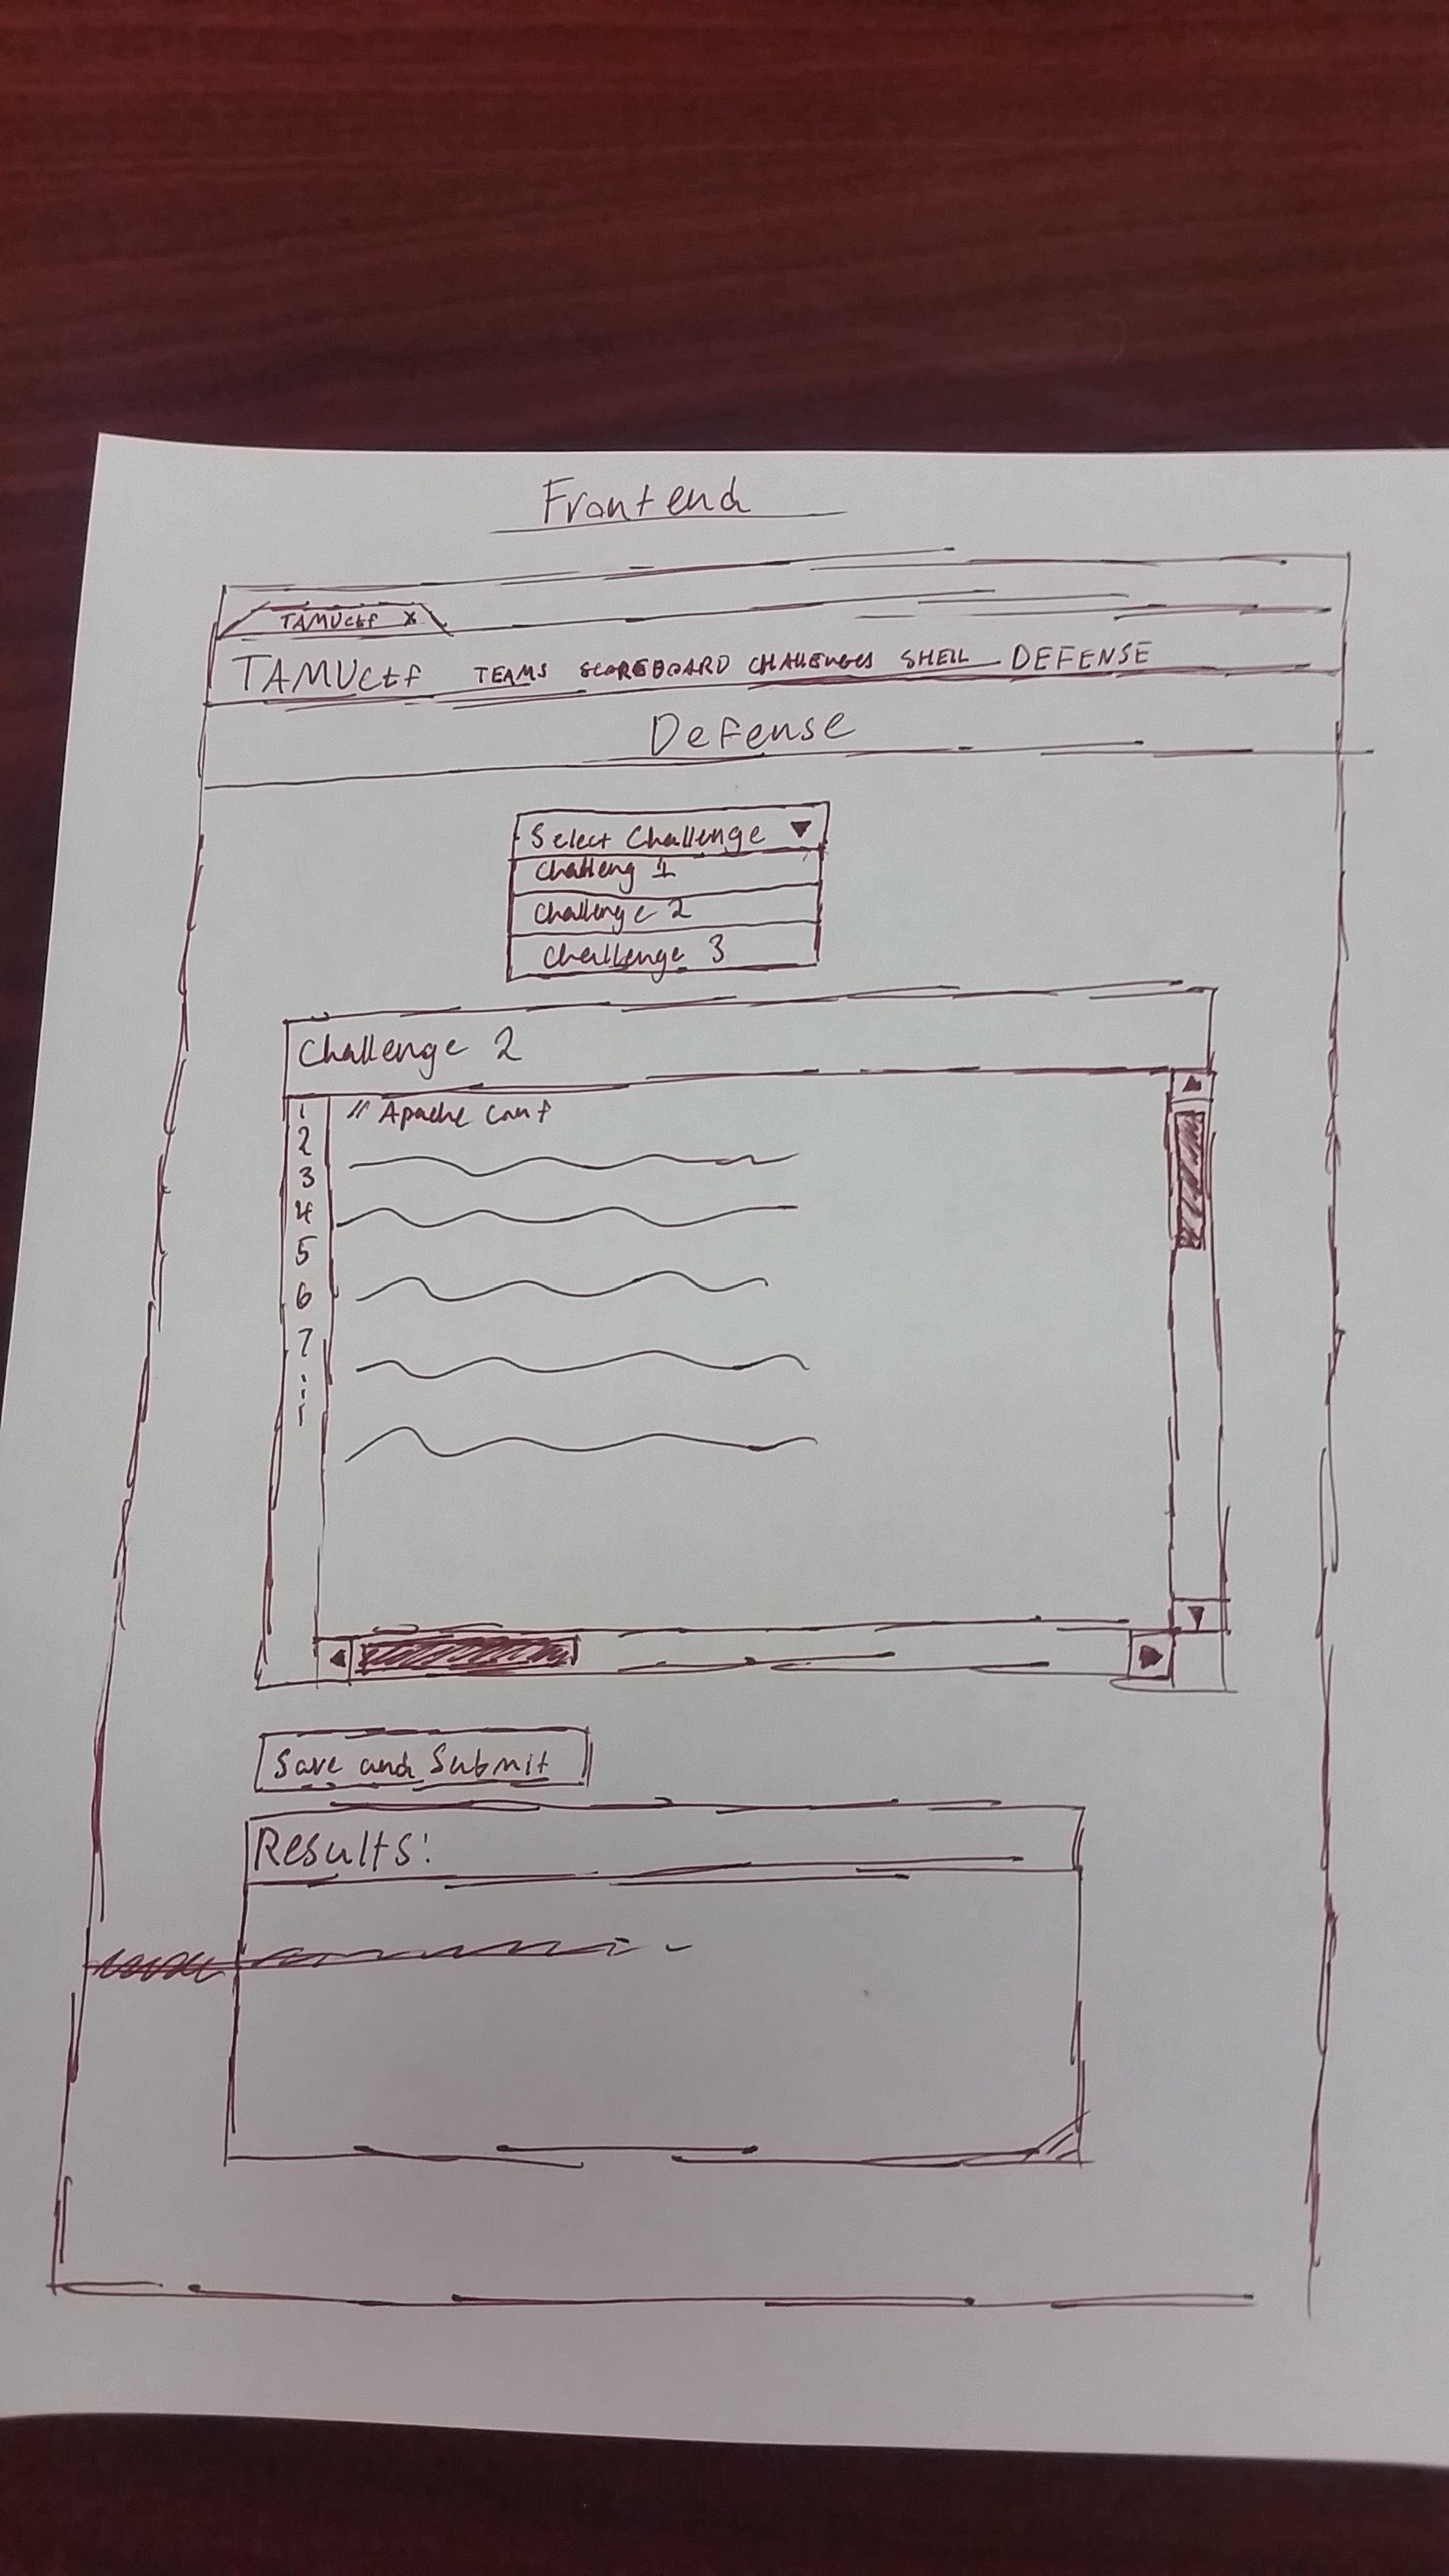 Frontend
TAMUctf x
TAMUctf TEAMS SCOREBOARD CHALLENGES SHELL DEFENSE
Defense
Select Challenge
Challeng 1
Challenge 2
Challenge 3
Challenge 2
1 // Apache Conf
2
3
4
5
6
7
Save and Submit
Results: